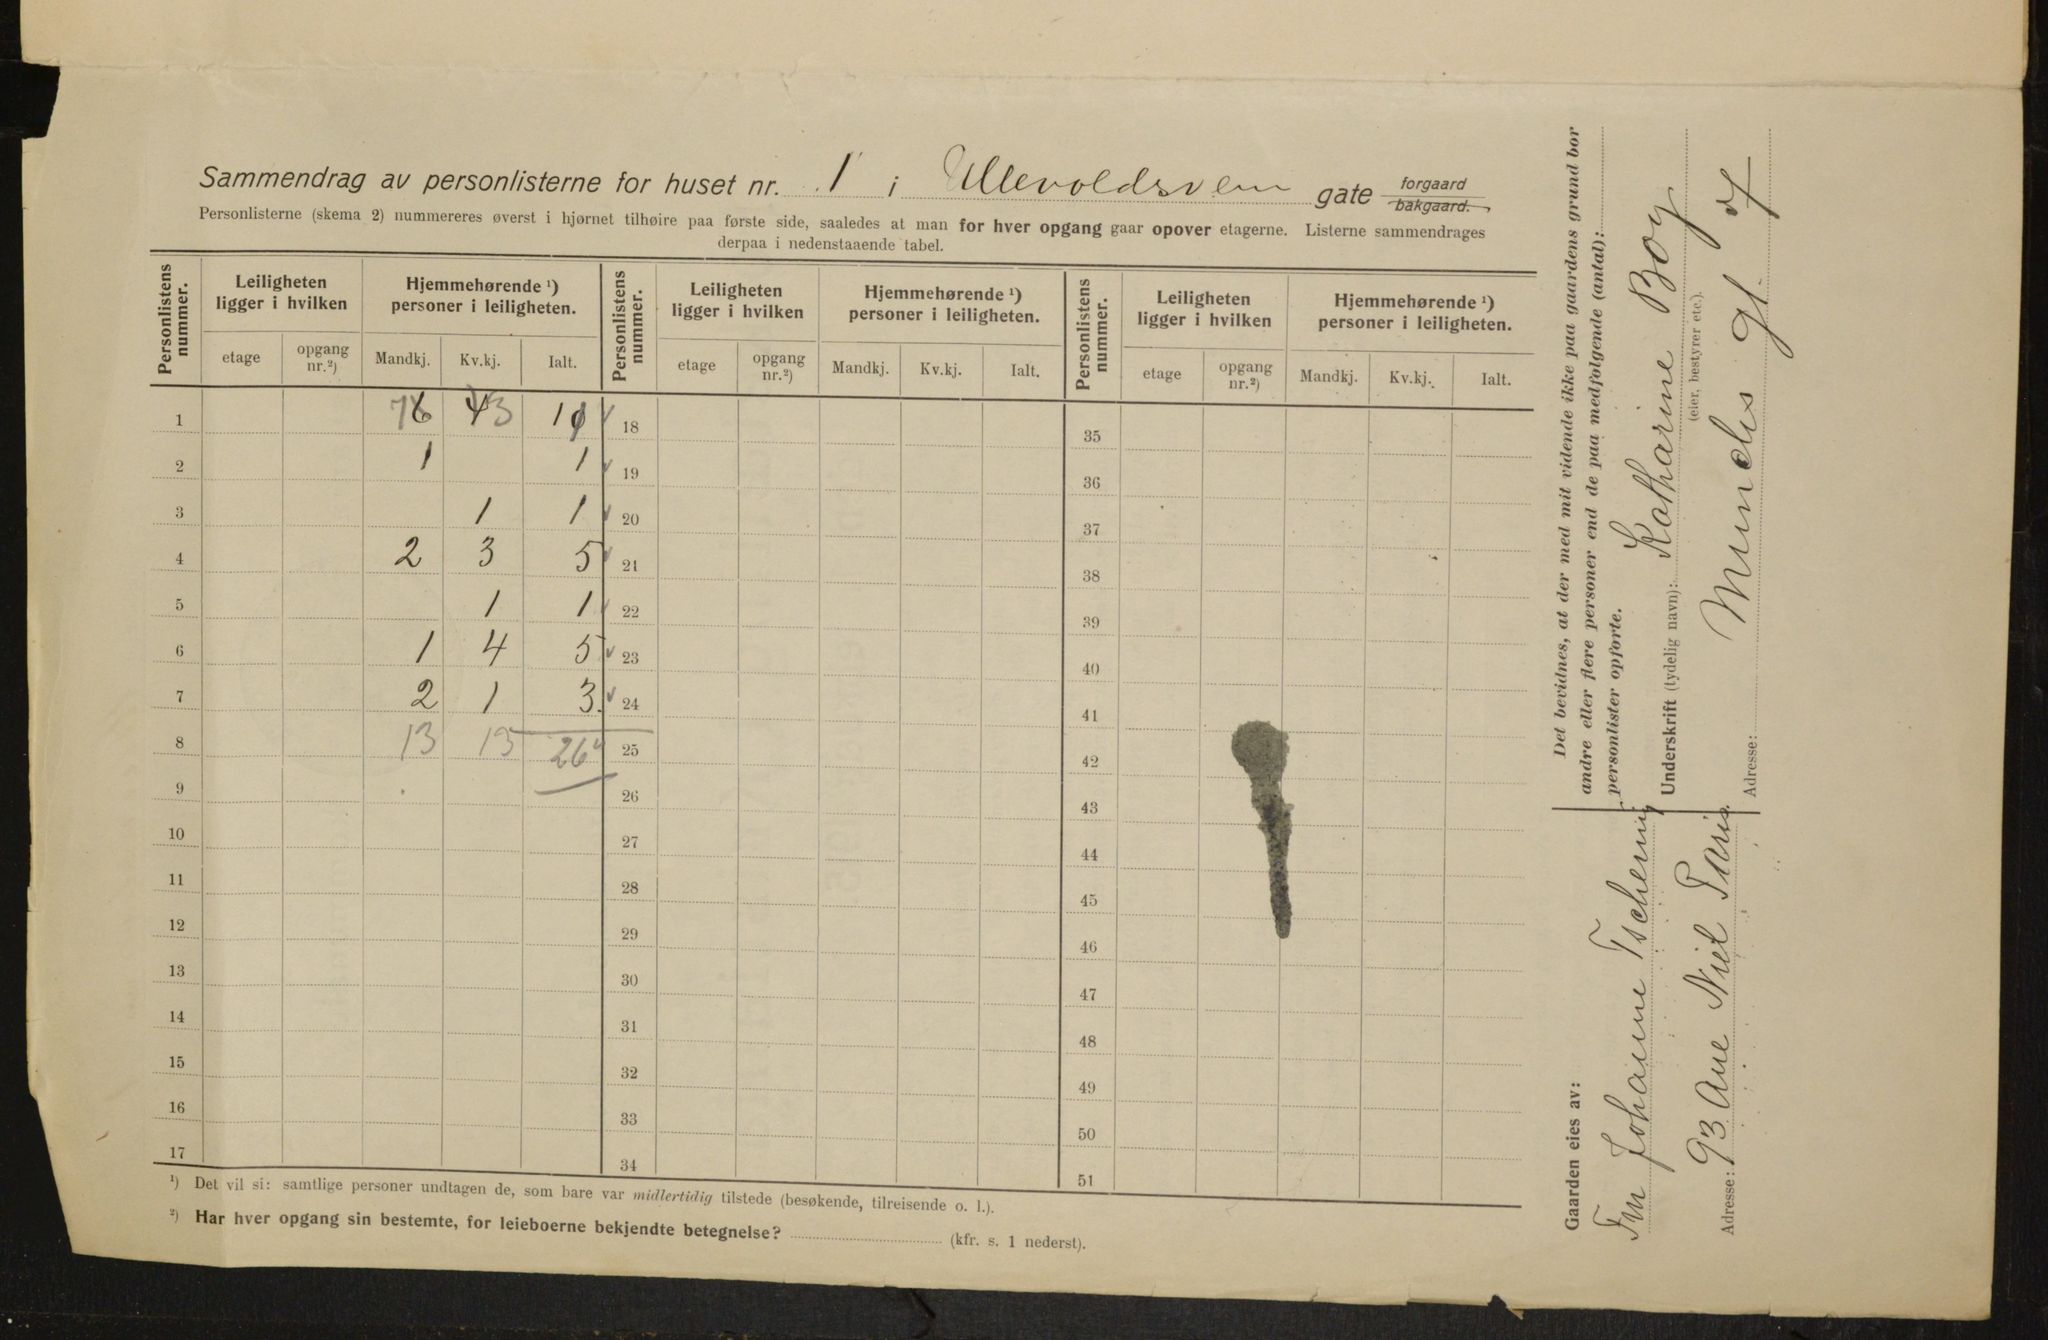 Sammendrag av personlisterne for huset nr. 1 i Ullevoldsveien gate forgaard bakgaard.
Personlisterne (skema 2) nummereres øverst i hjørnet tilhøire paa første side, saaledes at man for hver opgang gaar opover etagerne. Listerne sammendrages
derpaa i nedenstaaende tabel.
Personlistens nummer. Leiligheten ligger i hvilken Hjemmehørende ¹) personer i leiligheten. Personlistens nummer. Leiligheten ligger i hvilken Hjemmehørende ¹) personer i leiligheten. Personlistens nummer. Leiligheten ligger i hvilken Hjemmehørende ¹) personer i leiligheten.
etage opgang nr.²) Mandkj. Kv.kj. Ialt. etage opgang nr.²) Mandkj. Kv.kj. Ialt. etage opgang nr.²) Mandkj. Kv.kj. Ialt.
1 7 3 10 18 35
2 1 1 19 36
3 1 1 20 37
4 2 3 5 21 38
5 1 1 22 39
6 1 4 5 23 40
7 2 1 3. 24 41
8 13 13 26 25 42
9 26 43
10 27 44
11 28 45
12 29 46
13 30 47
14 31 48
15 32 49
16 33 50
17 34 51
¹) Det vil si: samtlige personer undtagen de, som bare var midlertidig tilstede (besøkende, tilreisende o. l.).
²) Har hver opgang sin bestemte, for leieboerne bekjendte betegnelse? (kfr. s. 1 nederst).
Det bevidnes, at der med mit vidende ikke paa gaardens grund bor
andre eller flere personer end de paa medfølgende (antal):
personlister opførte.
Underskrift (tydelig navn): Katharine Boy
(eier, bestyrer etc.).
Adresse: Munchs gt. 7
Gaarden eies av:
Fru Johanne Tscherning
Adresse: 93 Ave Niel Paris.